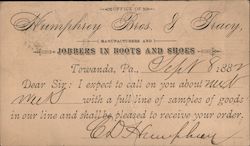 OFFICE OF
Humphrey Bros. & Tracy,
MANUFACTURERS AND
JOBBERS IN BOOTS AND SHOES
Towanda, Pa., Sept 8 1882
Dear Sir: I expect to call on you about next
week with a full line of samples of goods
in our line and shall be pleased to receive your order.
C D Humphrey